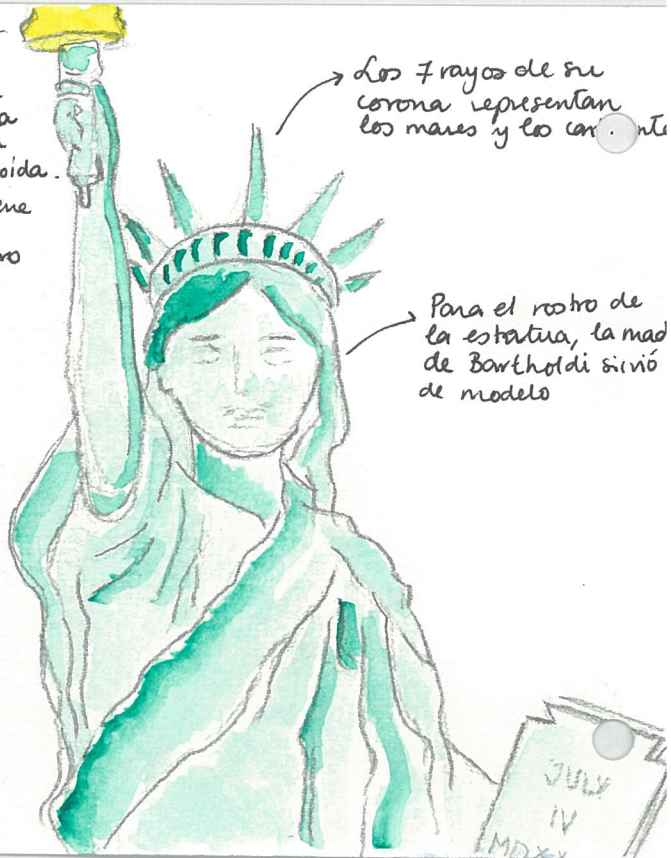 oída.
Los 7 rayos de su
corona representan
los mares y los
Para el rostro de
la estatua, la
de Bartholdi sirvió
de modelo
JULY
IV